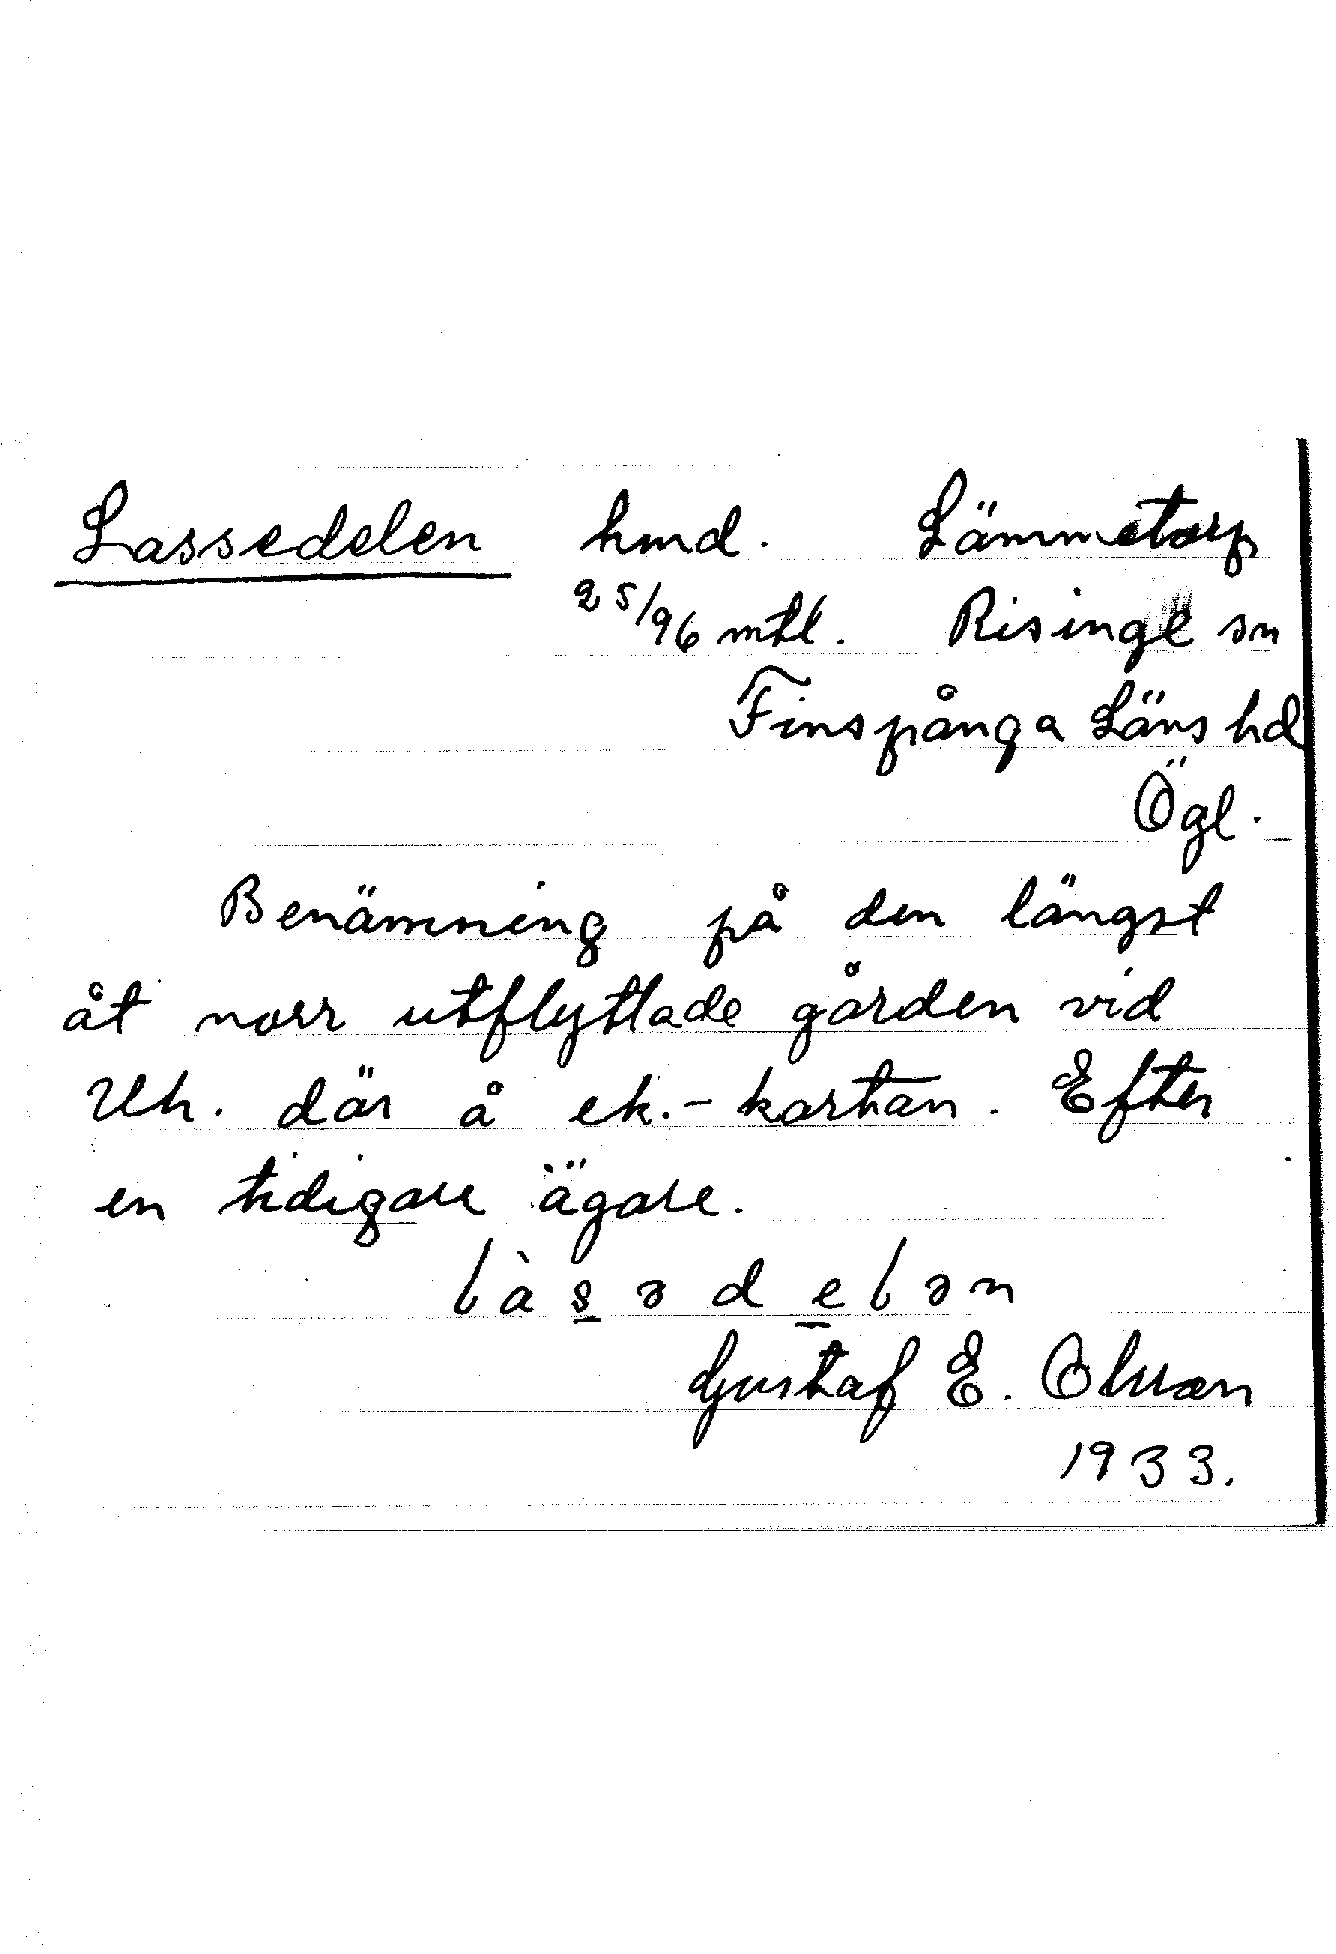 Lassedelen hmd. Lämmetorp
25/96 mtl. Risinge sn
Finspånga Läns hd
Ögl.
Benämning på den längst
åt norr utflyttade gården vid
Uh. där å ek.-kartan. Efter
en tidigare ägare.
làsədelən
Gustaf E. Olsson
1933.